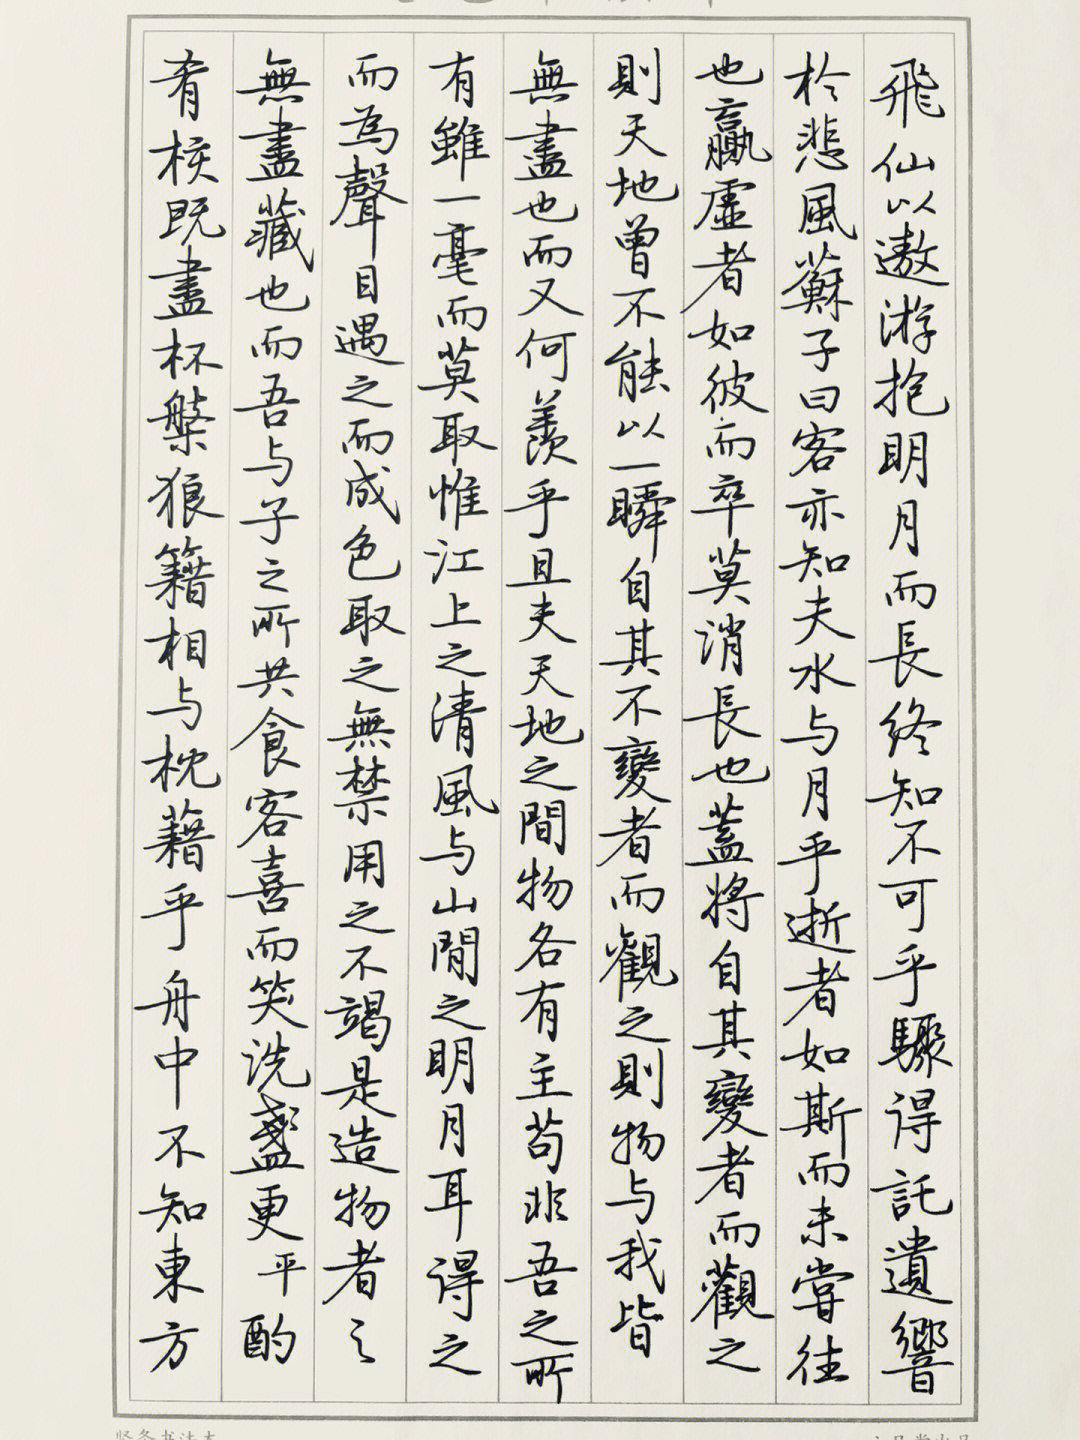 飛仙以遨游抱明月而長終知不可乎驟得託遺響
於悲風蘇子曰客亦知夫水与月乎逝者如斯而未嘗往
也贏虛者如彼而卒莫消長也蓋將自其變者而觀之
則天地曾不能以一瞬自其不變者而觀之則物与我皆
無盡也而又何羨乎且夫天地之間物各有主苟非吾之所
有雖一毫而莫取惟江上之清風与山間之明月耳得之
而為聲目遇之而成色取之無禁用之不竭是造物者之
無盡藏也而吾与子之所共食客喜而笑洗盞更平酌
肴核既盡杯槃狼籍相与枕藉乎舟中不知東方
竖条书法本